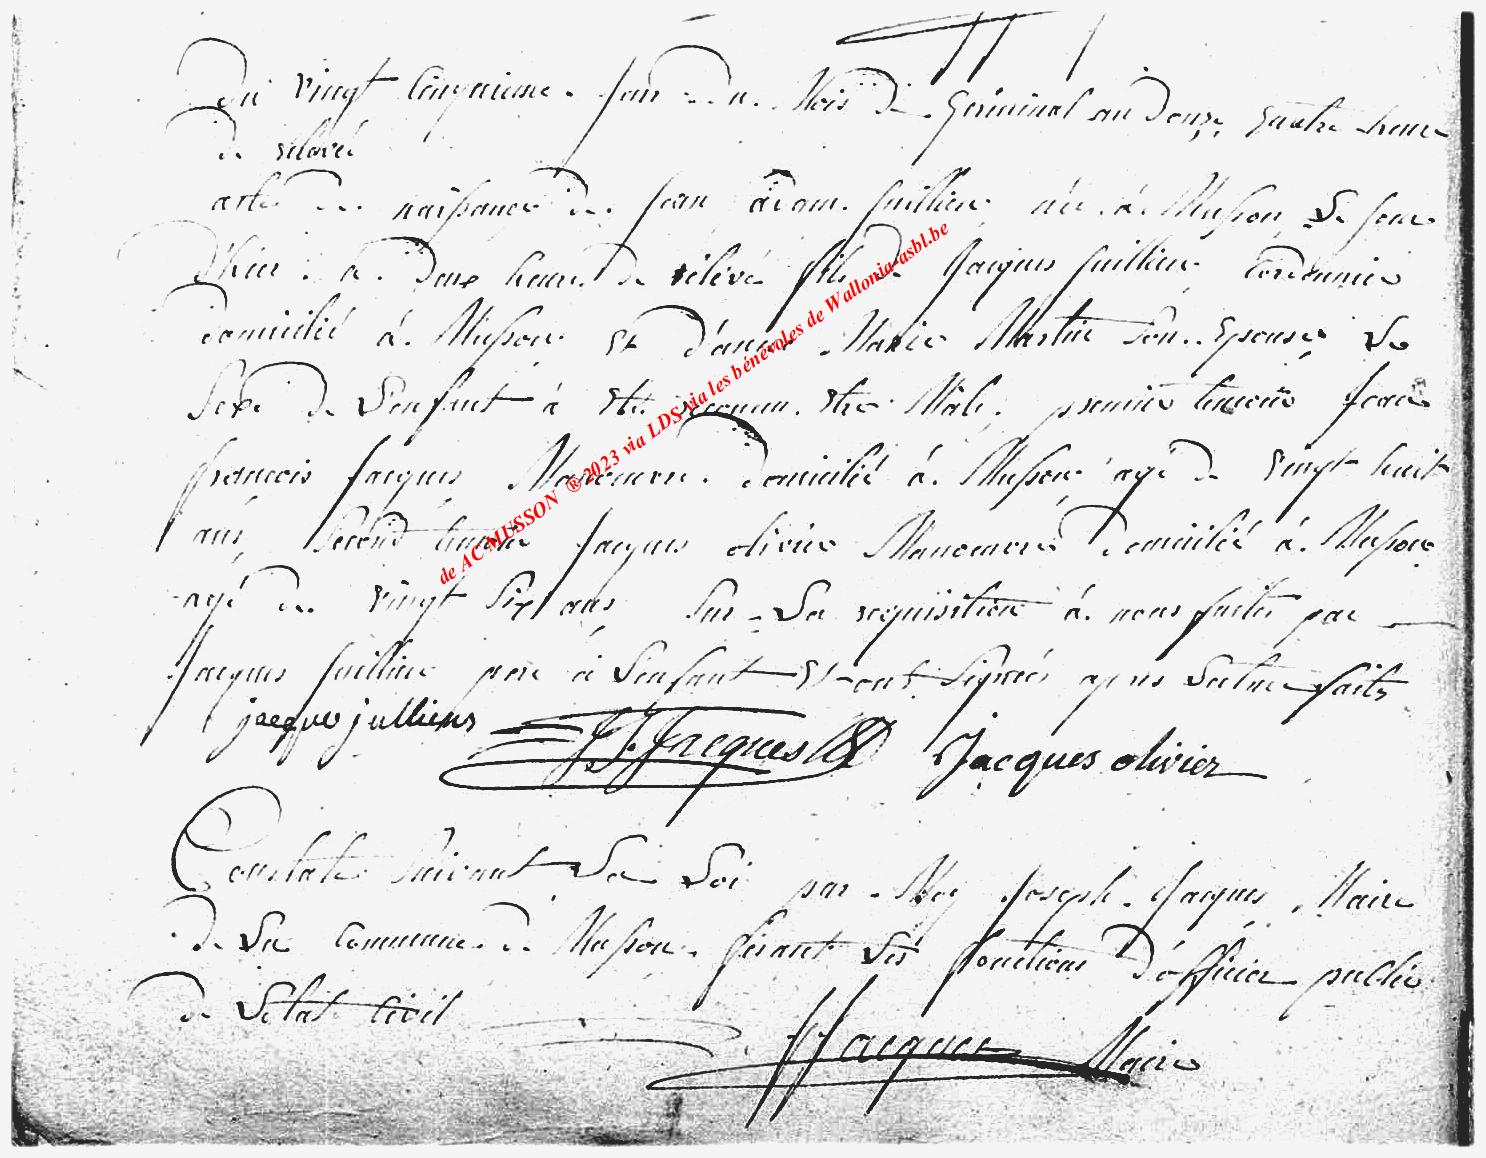 Du vingt cinquieme jour du Mois de Germinal an Douze quatre heure
de relevé
acte de naissance de jean adam juillien né à Musson Le jour
D'hier à Deux heure de relévé fils de Jacques juillien Cordonnier
domicilié à Musson et d'anne Marie Martin Son Epouse Le
Sexe de L'enfant à Eté reconnu Etre Mâle premier temoin jean
françois jacques Manoeuvre domicilié à Musson agé de vingt huit
ans, Second temoin jacques olivier Manoeuvre domicilié à Musson
agé de vingt Six ans Sur La requisition à nous faite par
jacques juillien pere à L'enfant Et ont Signés apres Lecture faite
jacque julliens J f Jacques Jacques olivier
Constaté Suivant La Loi par Moy Joseph Jacques Maire
de La Commune de Musson faisant Les fonctions D'officier public
de L'etat Civil
J Jacques Maire
de AC MUSSON ®2023 via LDS via les bénévoles de Wallonia-asbl.be